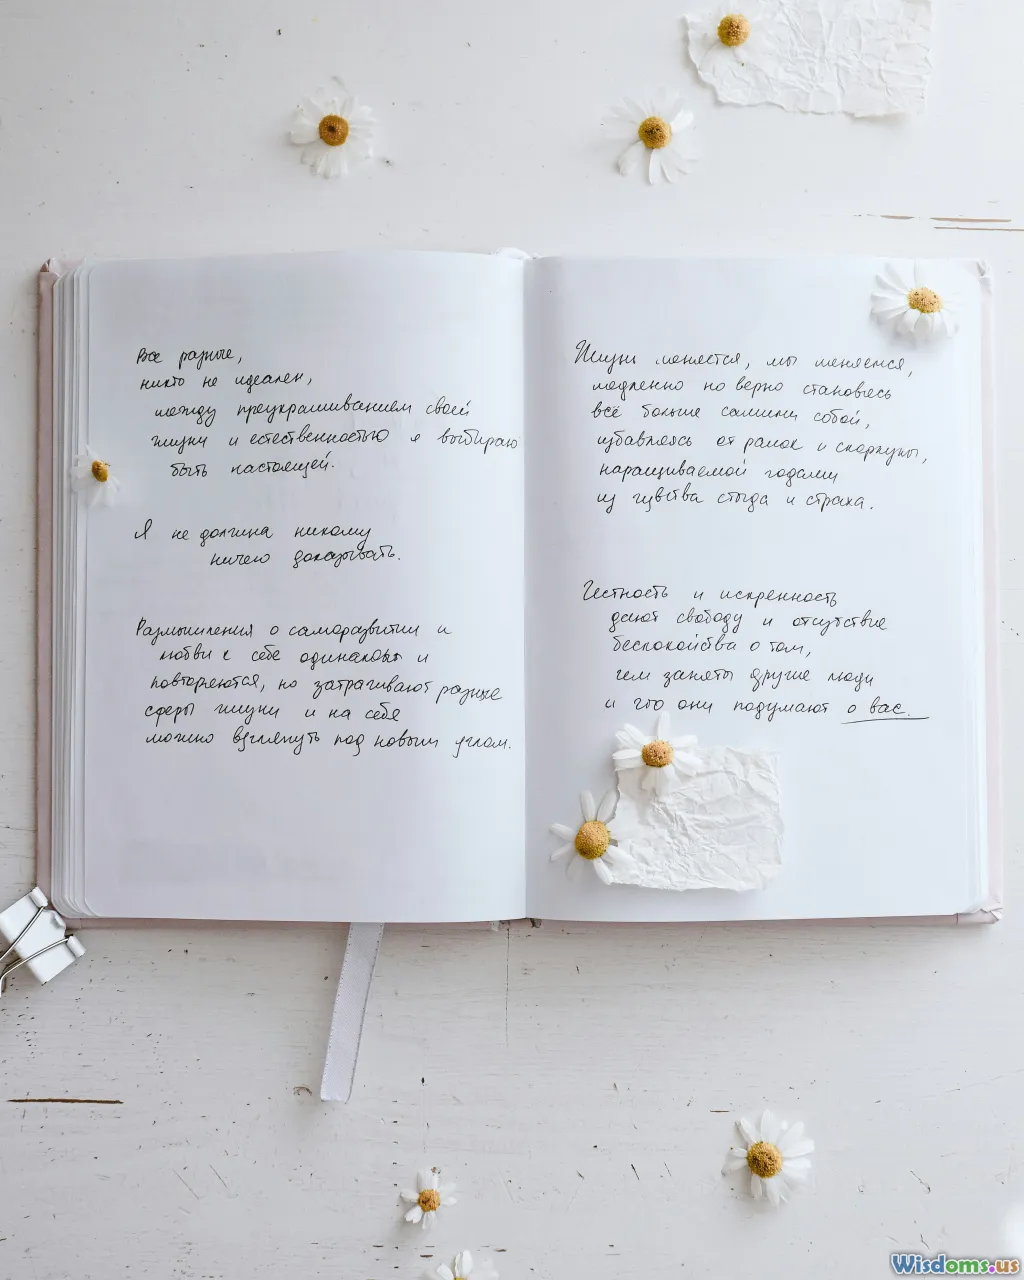 Все разные,
никто не идеален,
между преукрашиванием своей
жизни и естественностью я выбираю
быть настоящей.
Я не должна никому
ничего доказывать.
Размышления о саморазвитии и
любви к себе одинаковы и
повторяются, но затрагивают разные
сферы жизни и на себя
можно взглянуть под новым углом.
Жизнь меняется, мы меняемся,
медленно но верно становясь
всё больше самими собой,
избавляясь от рамок и скорлупы,
наращиваемой годами
из чувства стыда и страха.
Честность и искренность
дают свободу и отсутствие
беспокойства о том,
чем заняты другие люди
и что они подумают о вас.
Wisdoms.us